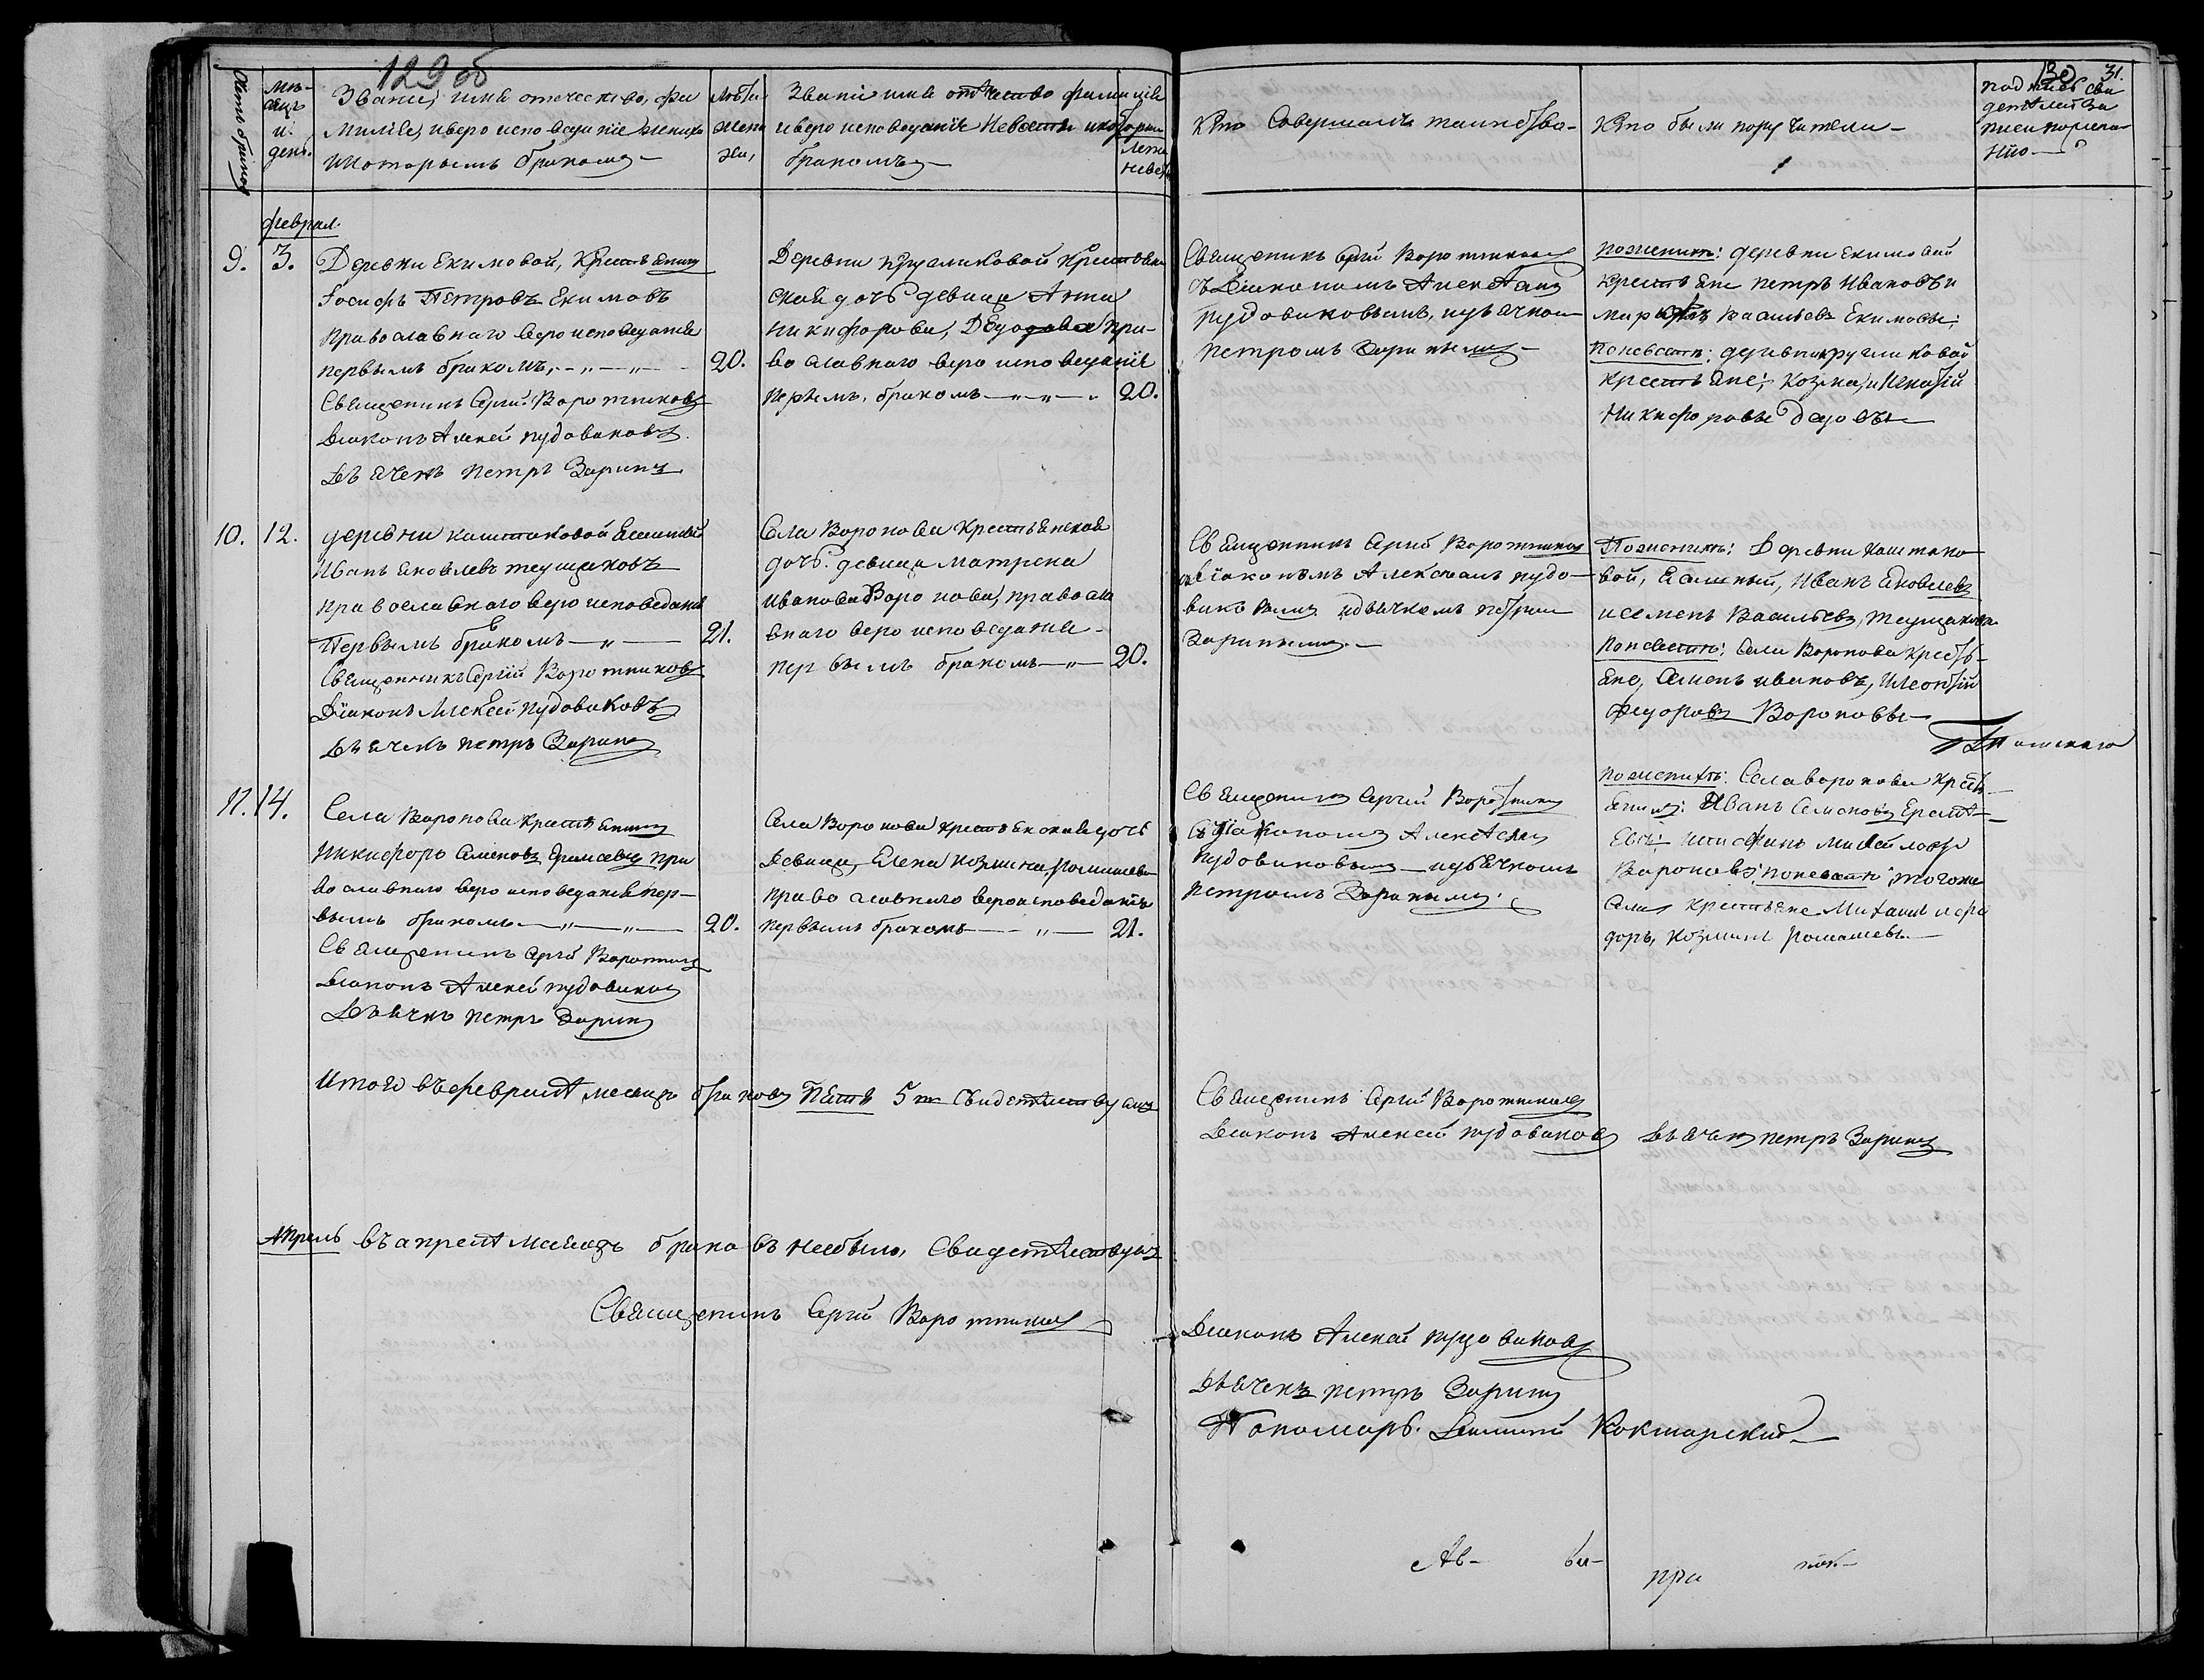 129 об
130 31.
Счетъ браков
мѣ-
сяцъ
и
день.
Званіе, имя отечество, фа
миліе, и вероисповеданіе жениха
и которымъ бракомъ
Лѣта
жени
ха,
Званіе имя отчество фамиліе
и вероисповеданіе Невесты и которымъ
бракомъ
Лета
невес
Кто Совершалъ таинства-
Кто были поручители-
подпись сви
детѣлей за
писи по жела
нію
Феврал.
9. 3.
Деревни Екимовой, крестьянинъ
Іосифъ Петровъ Екимовъ
православнаго вероисповеданія
первымъ бракомъ, 20.
Священникъ Сергій Воротниковъ
Діаконъ Алексей Пудовиковъ.
Дьячекъ Петръ Заринъ
Деревни Кругликовой крестьян
ская дочь девица Анна
Никифорова, Дедова пра-
вославнаго вероисповеданія
первымъ, бракомъ 20.
Священникъ Сергій Воротниковъ
съ Діакономъ Алексѣемъ
Пудовиковымъ, и дьячком
Петромъ Заринымъ
По женихѣ: деревни Екимовой
крестьяне Петръ Ивановъ и
Васильевъ Екимовы;
По невестѣ: деревни Кругликовой
крестьяне; Козма, и Игнатій
Никифоровы Дедовы
10. 12.
деревни Каштаковой Ясашный
Иванъ Яковлевъ Теущаковъ
православнаго вероисповеданія
Первымъ бракомъ 21.
Священникъ Сергій Воротниковъ
Діаконъ Алексей Пудовиковъ
Дьячекъ Петръ Заринъ
Села Воронова крестьянская
дочь девица Матрена
Иванова Воронова, правосла
внаго вероисповеданія
первымъ бракомъ 20.
Священникъ Сергій Воротниковъ
съ Діакономъ Алексѣемъ Пудо-
виковымъ и дьячкомъ Петромъ
Заринымъ
По женихѣ: Деревни Каштако-
вой, Ясашный, Иванъ Яковлевъ
и Семенъ Васильевъ, Теущаковы
По невестѣ: Села Воронова крестья-
яне, Семенъ Ивановъ, и Леонтій
Федоровъ Вороновы
11. 14.
Села Воронова крестьянинъ
Никифоръ Семеновъ Еремеевъ пра
вославнаго вероисповеданія пер-
вымъ бракомъ 20.
Священникъ Сергій Воротниковъ
Діаконъ Алексей Пудовиковъ
Дьячекъ Петръ Заринъ
Села Воронова крестьянская дочь
девица, Елена Козмина, Ромашева
православнаго вероисповеданія
первымъ бракомъ 21.
Священникъ Сергій Воротников
съ Діакономъ Алексѣемъ
Пудовиковымъ и дьячкомъ
Петромъ Заринымъ.
По женихѣ: Села Воронова крестья-
янинъ: Иванъ Семеновъ Еремѣ-
евъ; Михайловъ
Вороновъ; по невестѣ; тогоже
Села крестьяне Михаилъ и Фе
доръ, Козмины Ромашевы.
Итого въ февралѣ месяце браковъ пять 5 Свидетельствуемъ
Священникъ Сергій Воротниковъ
Діаконъ Алексей Пудовиковъ Дьячекъ Петръ Заринъ
Апрель въ апрелѣ месяцѣ браковъ небыло, Свидетельствуемъ
Священникъ Сергій Воротниковъ
Діаконъ Алексей Пудовиковъ
Дьячекъ Петръ Заринъ
Пономарь Кокшарскій